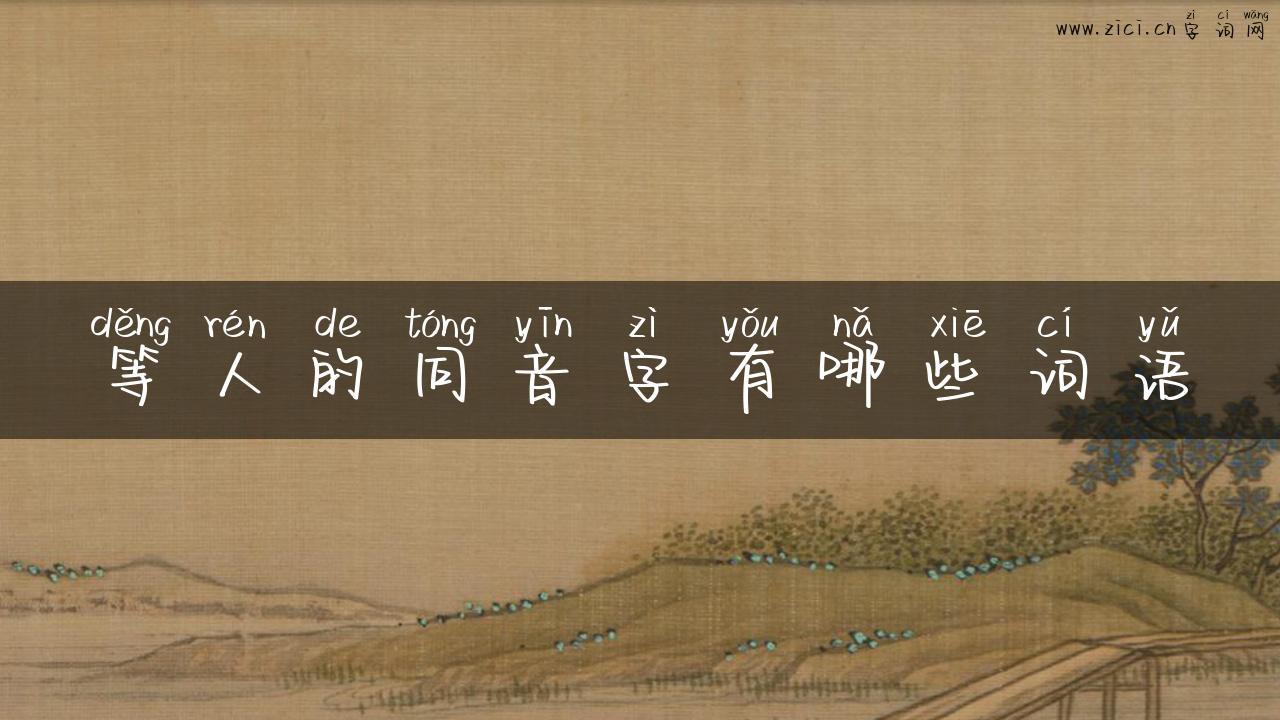 zì cí wǎng
www.zici.cn字词网
děng rén de tóng yīn zì yǒu nǎ xiē cí yǔ
等人的同音字有哪些词语